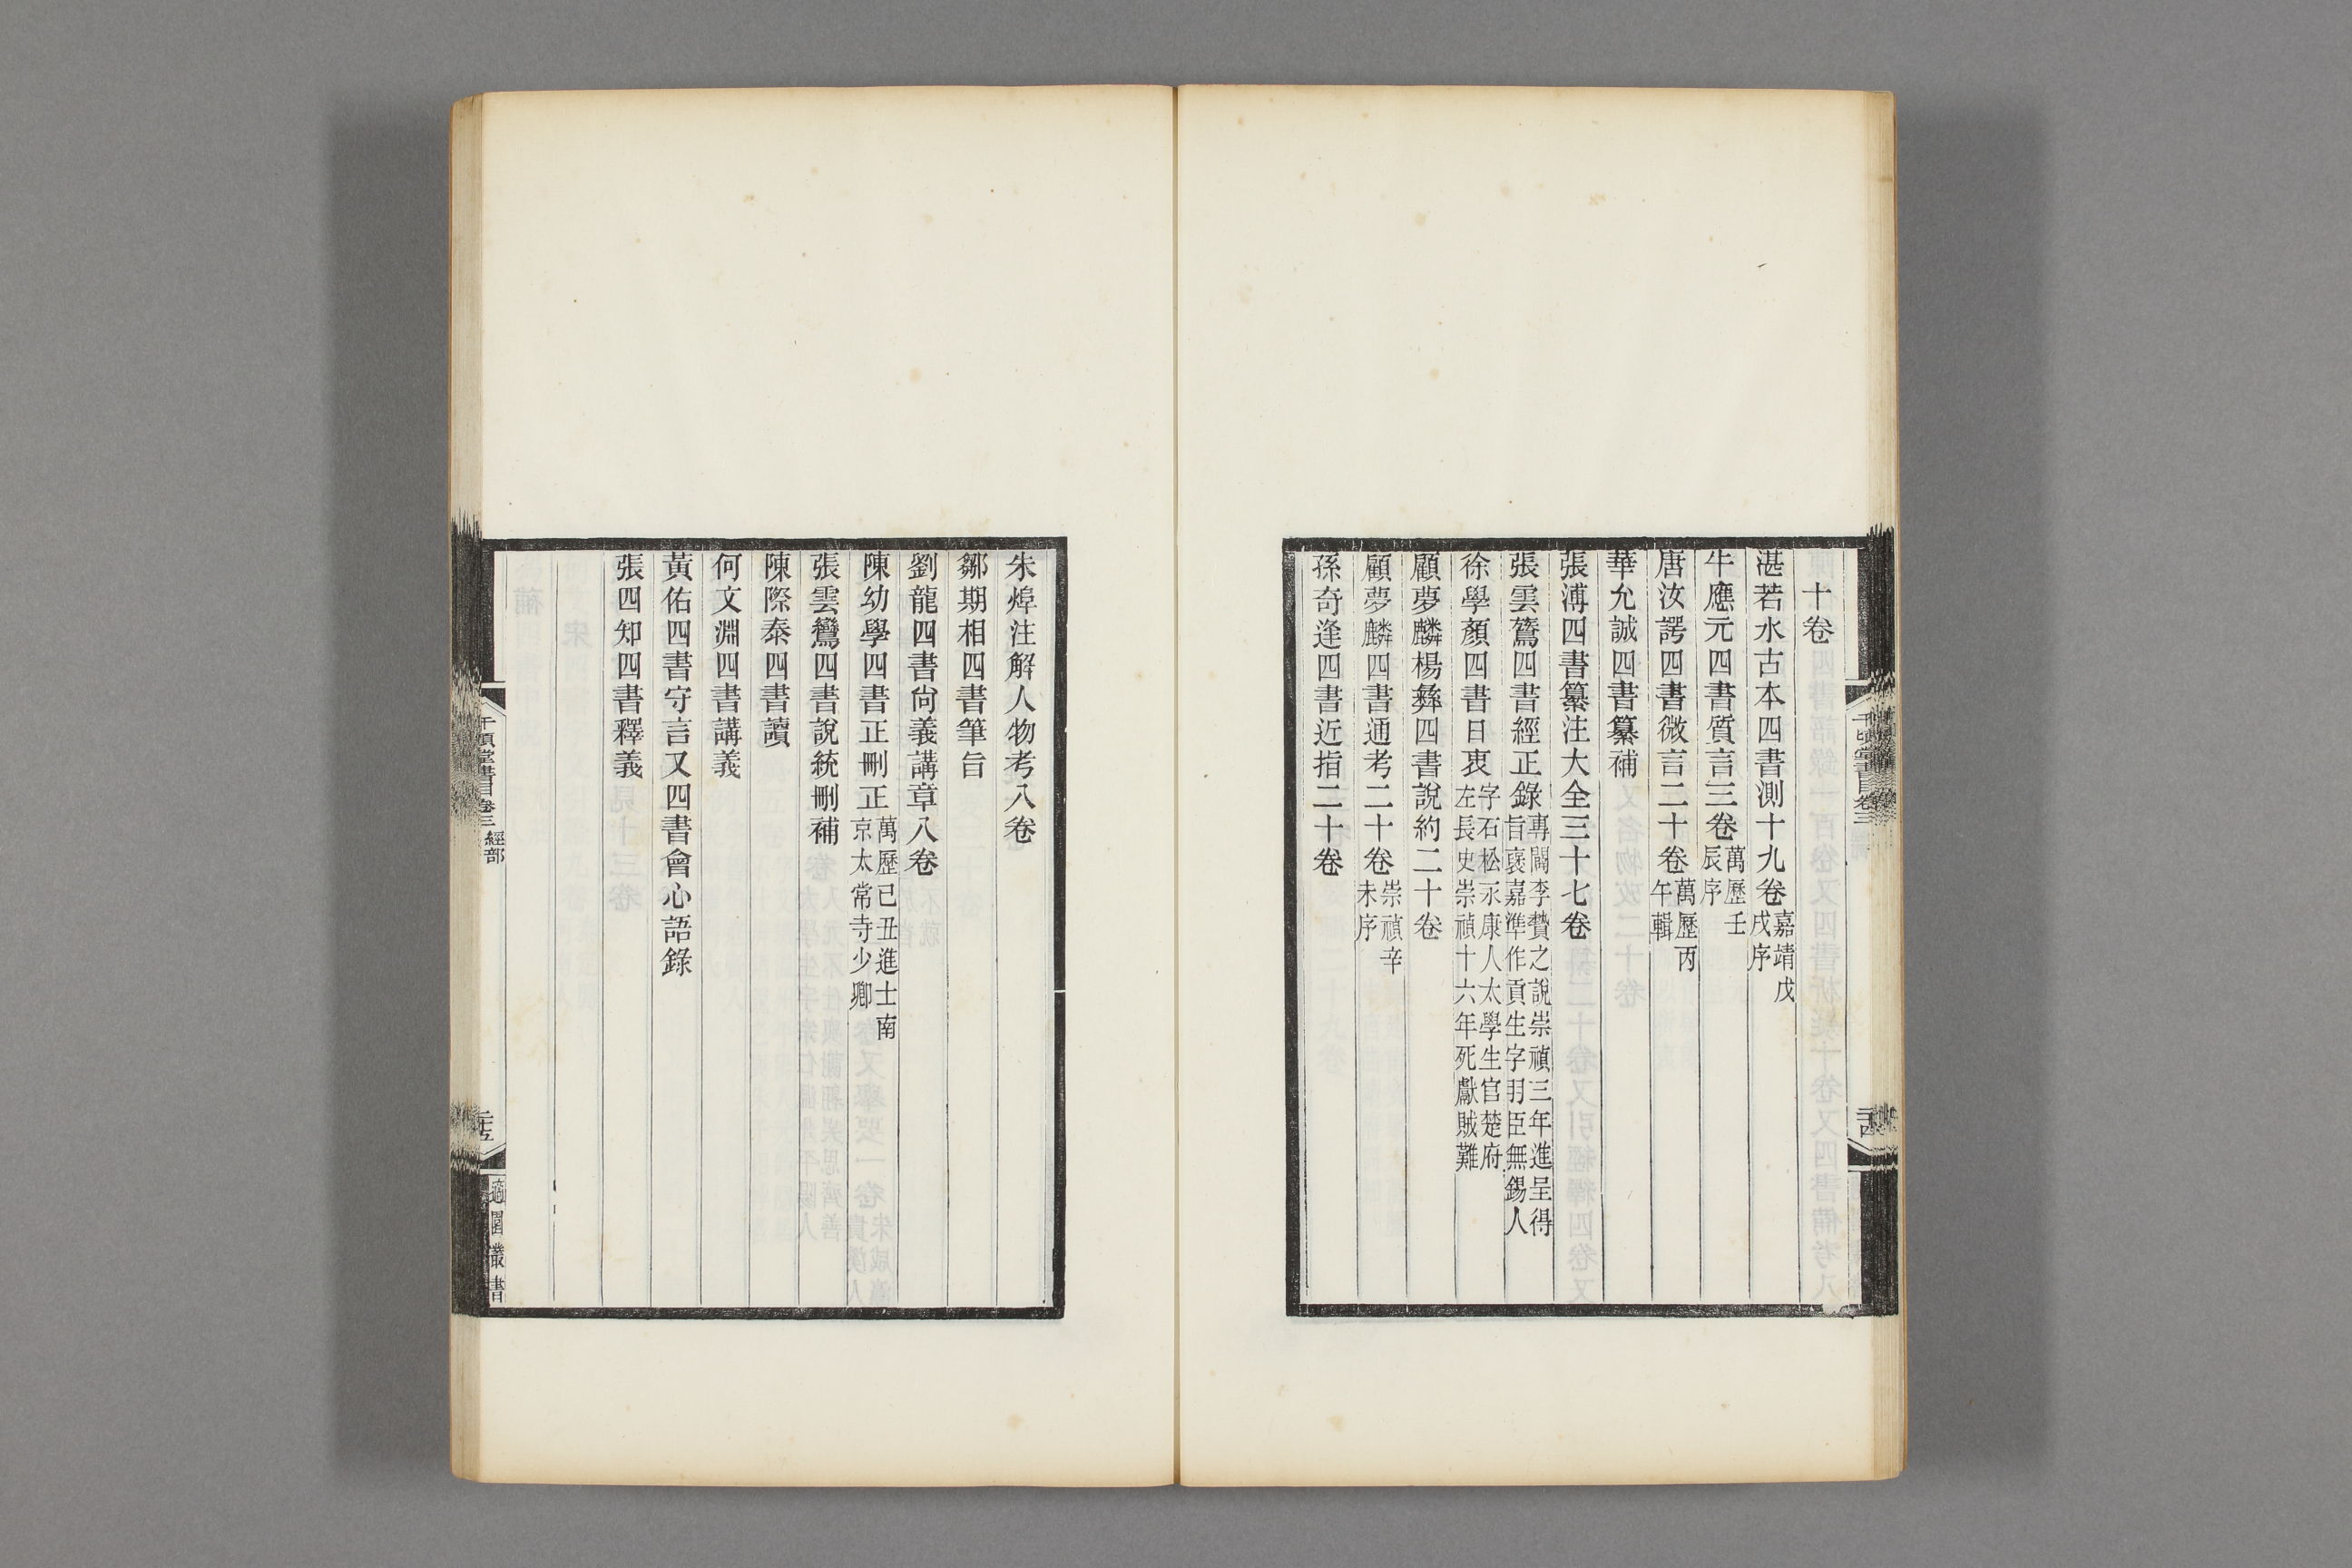 十卷
湛若水古本四書測十九卷嘉靖戊戌序
牛應元四書質言三卷萬歷壬辰序
唐汝諤四書微言二十卷萬歷丙午輯
華允誠四書纂補
張溥四書纂注大全三十七卷
張雲鸞四書經正錄專闢李贄之說崇禎三年進呈得旨襃嘉準作貢生字羽臣無錫人
徐學顏四書日衷字石松永康人太學生官楚府左長史崇禎十六年死獻賊難
顧夢麟楊彝四書說約二十卷
顧夢麟四書通考二十卷崇禎辛未序
孫奇逢四書近指二十卷
千頃堂書目卷三
二十四
朱焯注解人物考八卷
鄒期相四書筆旨
劉龍四書尙義講章八卷
陳幼學四書正刪正萬歷己丑進士南京太常寺少卿
張雲鸞四書說統刪補
陳際泰四書讀
何文淵四書講義
黃佑四書守言又四書會心語錄
張四知四書釋義
千頃堂書目卷三 經部
二十五
適園叢書